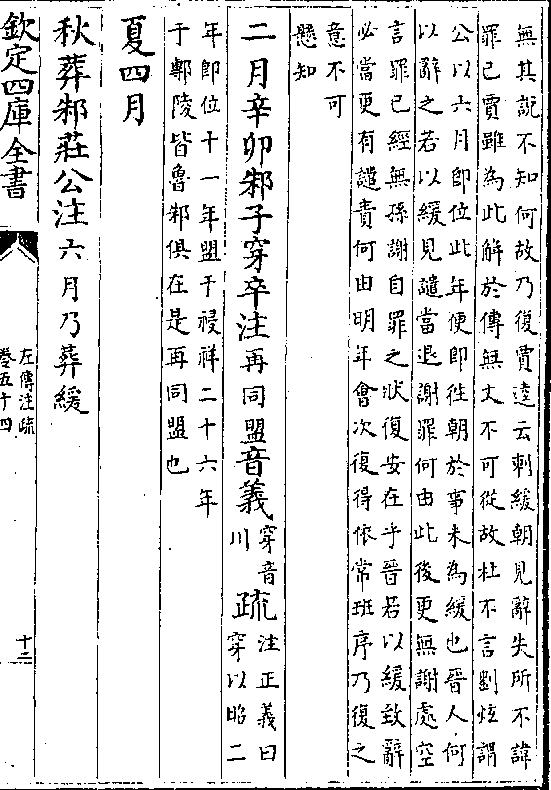 無其說不知何故乃復賈逵云刺緩朝見辭失所不諱
罪己賈雖為此解於傳無文不可從故杜不言劉炫謂
公以六月即位此年便即往朝於事未為緩也晉人何
以辭之若以緩見譴當退謝罪何由此後更無謝處空
言罪己經無孫謝自罪之狀復安在乎晉若以緩致辭
必當更有譴責何由明年會次復得依常班序乃復之
意不可
懸知
二月辛卯邾子穿卒注再同盟音義穿音川疏注正義曰穿以昭二
年即位十一年盟于祲祥二十六年
于鄟陵皆魯邾俱在是再同盟也
夏四月
秋葬邾莊公注六月乃葬緩
欽定四庫全書
左傳注疏
卷五十四
十二